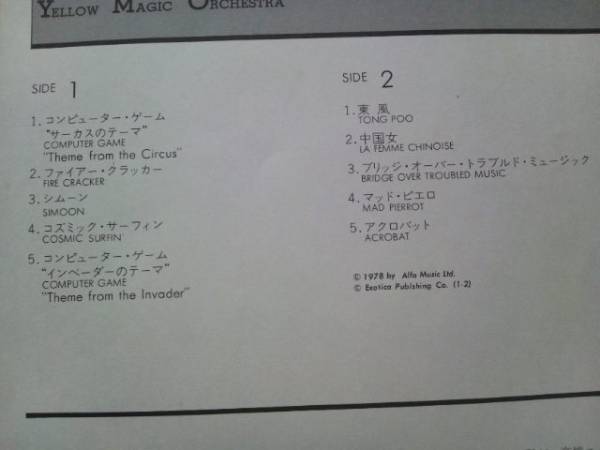 YELLOW MAGIC ORCHESTRA
SIDE 1
1. コンピューター・ゲーム
“サーカスのテーマ”
COMPUTER GAME
"Theme from the Circus"
2. ファイアー・クラッカー
FIRE CRACKER
3. シムーン
SIMOON
4. コズミック・サーフィン
COSMIC SURFIN'
5. コンピューター・ゲーム
“インベーダーのテーマ”
COMPUTER GAME
"Theme from the Invader"
SIDE 2
1. 東風
TONG POO
2. 中国女
LA FEMME CHINOISE
3. ブリッジ・オーバー・トラブルド・ミュージック
BRIDGE OVER TROUBLED MUSIC
4. マッド・ピエロ
MAD PIERROT
5. アクロバット
ACROBAT
© 1978 by Alfa Music Ltd.
© Exotica Publishing Co. (1-2)